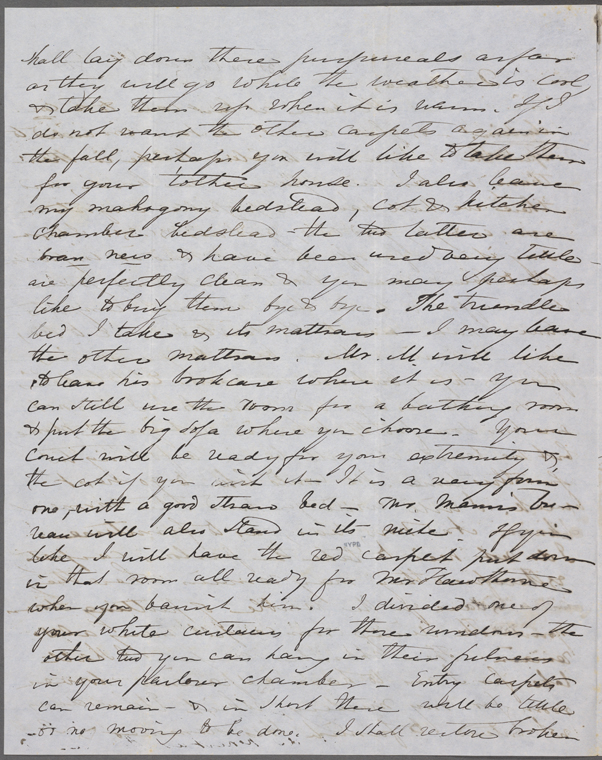 shall lay down these purpureals as far
as they will go while the weather is cool
& take them up when it is warm. If I
do not want the other carpets again in
the fall, perhaps you will like to take them
for your tother house. I also leave
my mahogony bedstead, cot & kitchen
chamber bedstead - the two latter are
bran new & have been used very little -
are perfectly clean & you may perhaps
like to buy them bye & bye. The trundle
bed I take & its mattrass - I may leave
the other mattrass. Mr. M will like
to leave his bookcase where it is - You
can still use the room for a bathing room
& put the big sofa where you choose. Your
Couch will be ready for your extremity &
the cot if you wish it - It is a very firm
one, with a good straw bed - Mr. Mann's bu-
reau will also stand in its niche. If you
like I will have the red carpet put down
NYPL
in that room all ready for Mr. Hawthorne
when you banish him. I divided one of
your white curtains for those windows - the
other two you can hang in their fulness
in your parlour chamber - Entry carpets
can remain - & in short there will be little
or no moving to be done. I shall restore broken